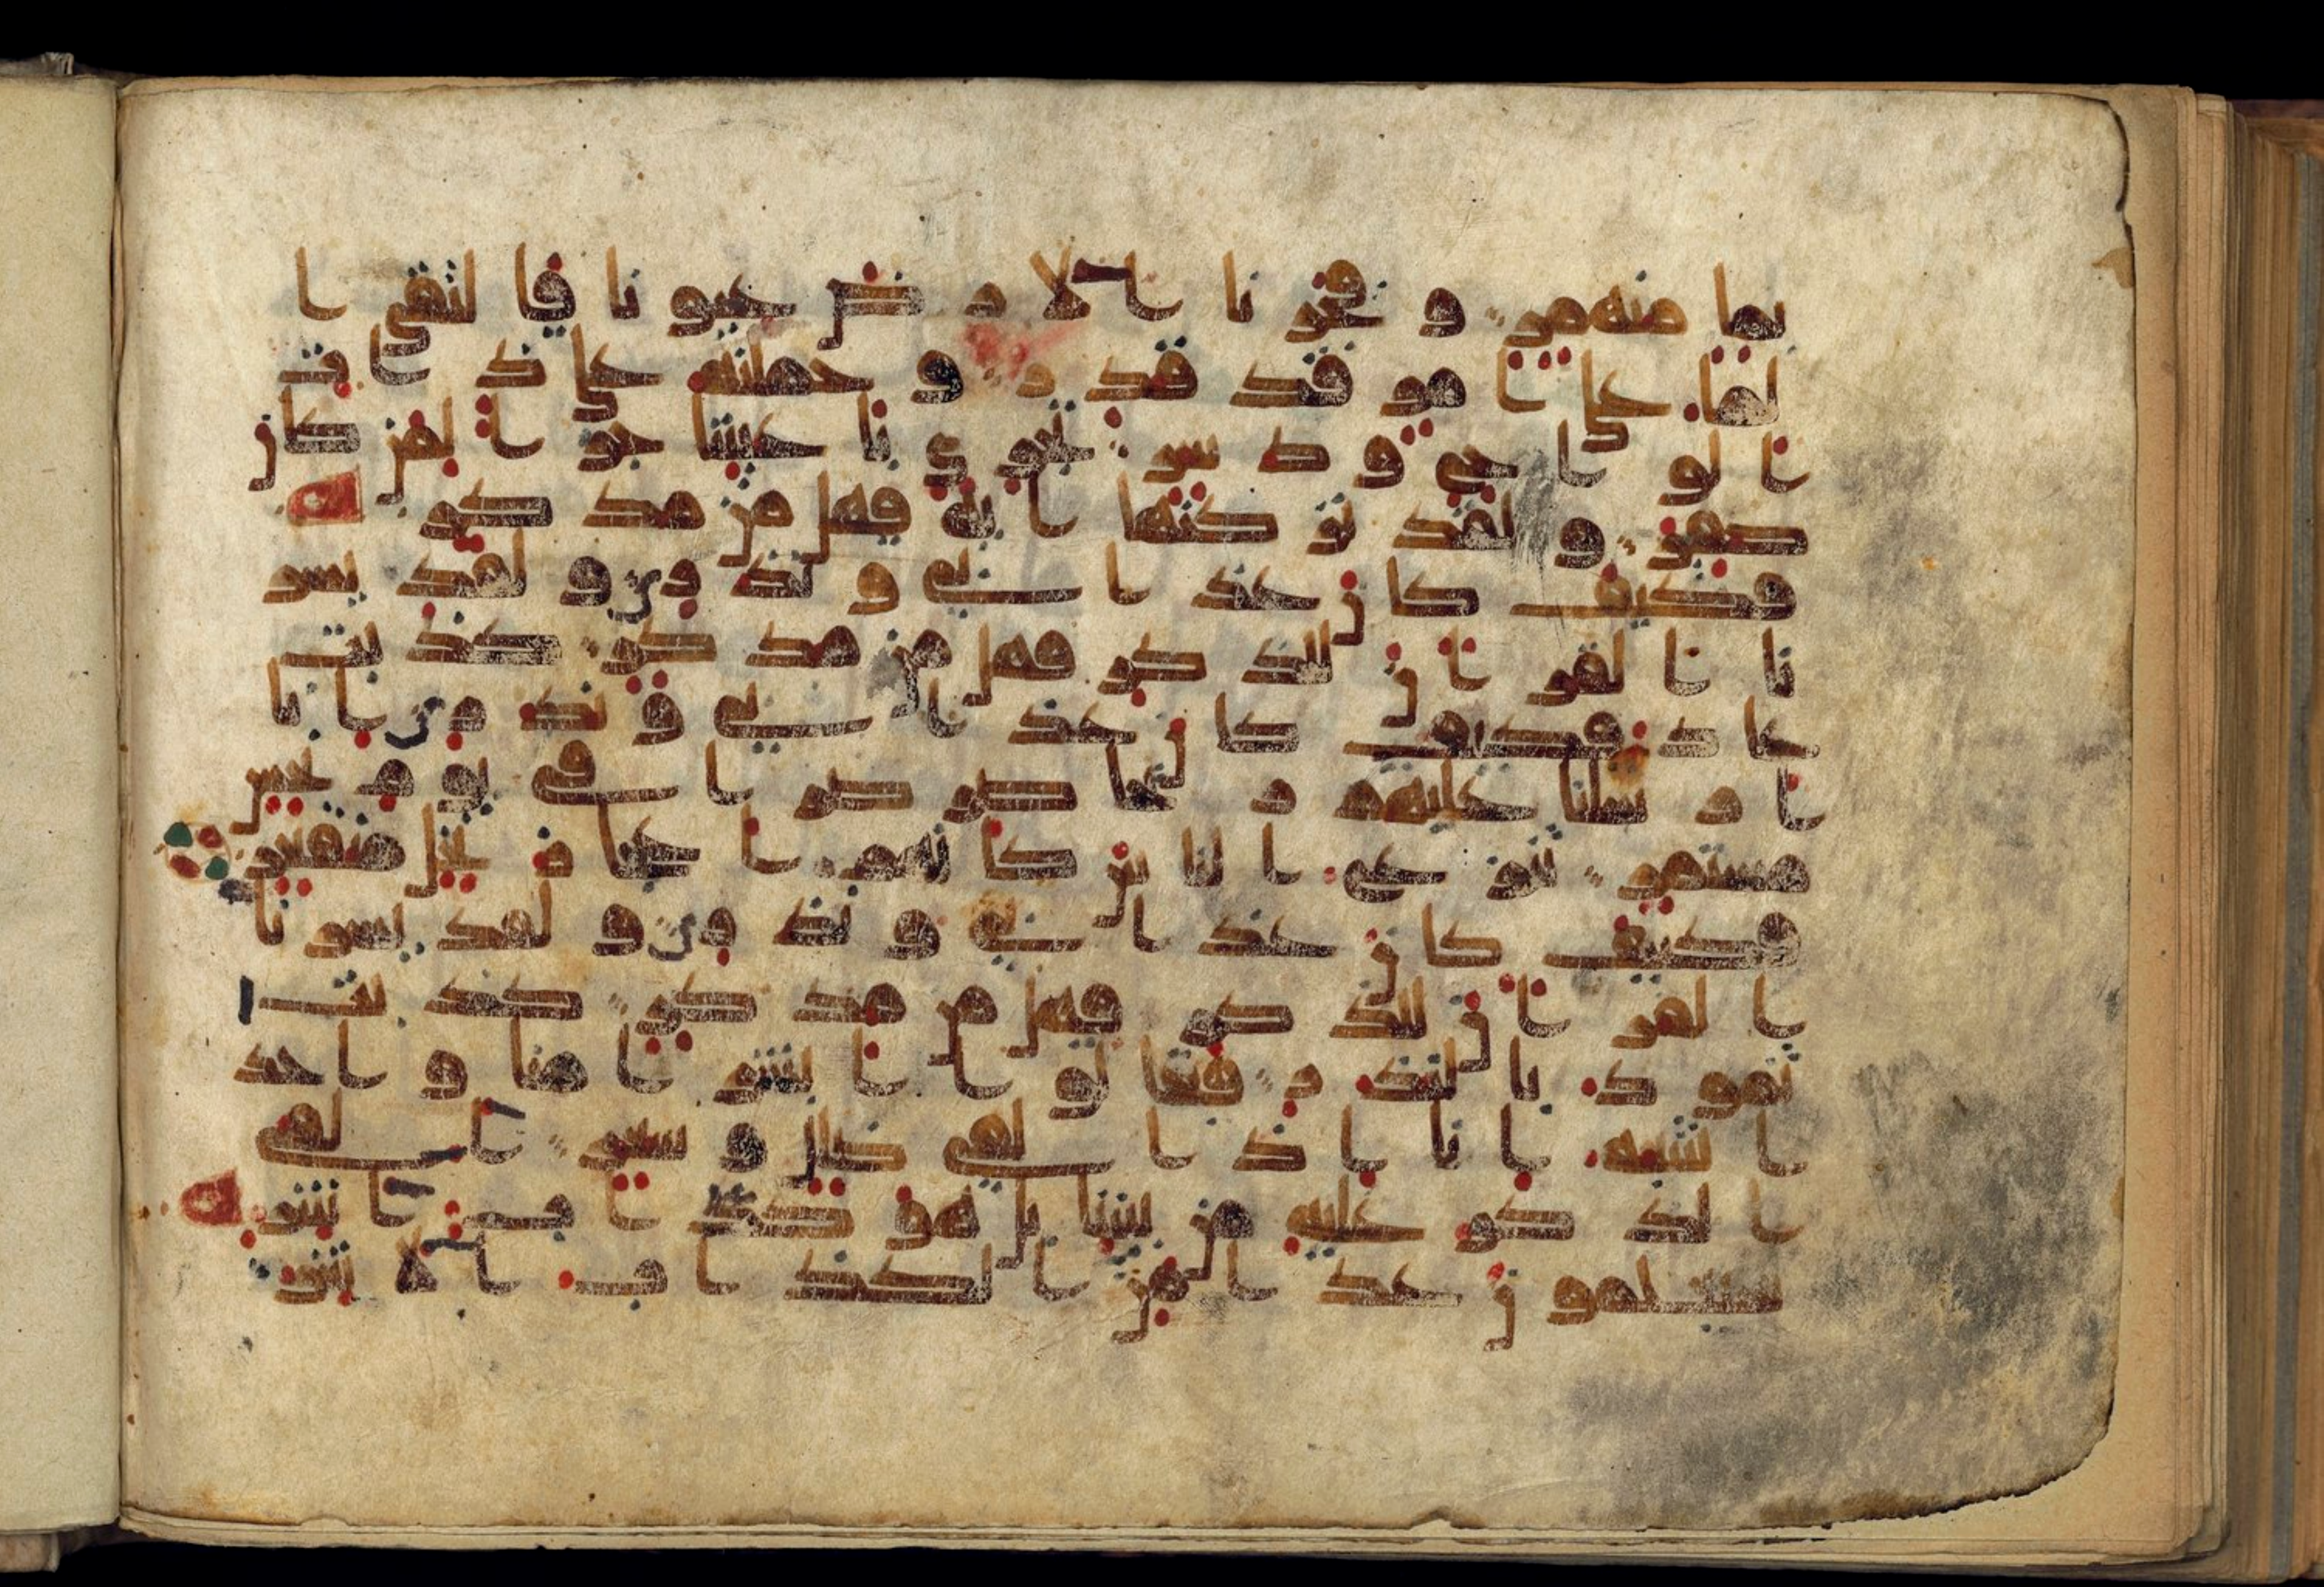 بما منهمر و فجرنا الارض عيونا فالتقى ا
لما على امر قد قدر و حملنه على ذات
الواح و دسر تجري باعيننا جزا لمن كان
كفر و لقد تركنها اية فهل من مدكر
فكيف كان عذابي و نذر و لقد يسر
نا القران للذكر فهل من مدكر كذبت
عاد فكيف كان عذابي و نذر انا
ارسلنا عليهم ريحا صرصرا في يوم نحس
مستمر تنزع الناس كانهم اعجاز نخل منقعر
فكيف كان عذابي و نذر و لقد يسرنا
القران للذكر فهل من مدكر كذبت
ثمود بالنذر فقالوا ابشرا منا واحد
ا نتبعه انا اذا لفي ضلال و سعر االقي
الذكر عليه من بيننا بل هو كذاب اشر
سيعلمون غدا من الكذاب الاشر